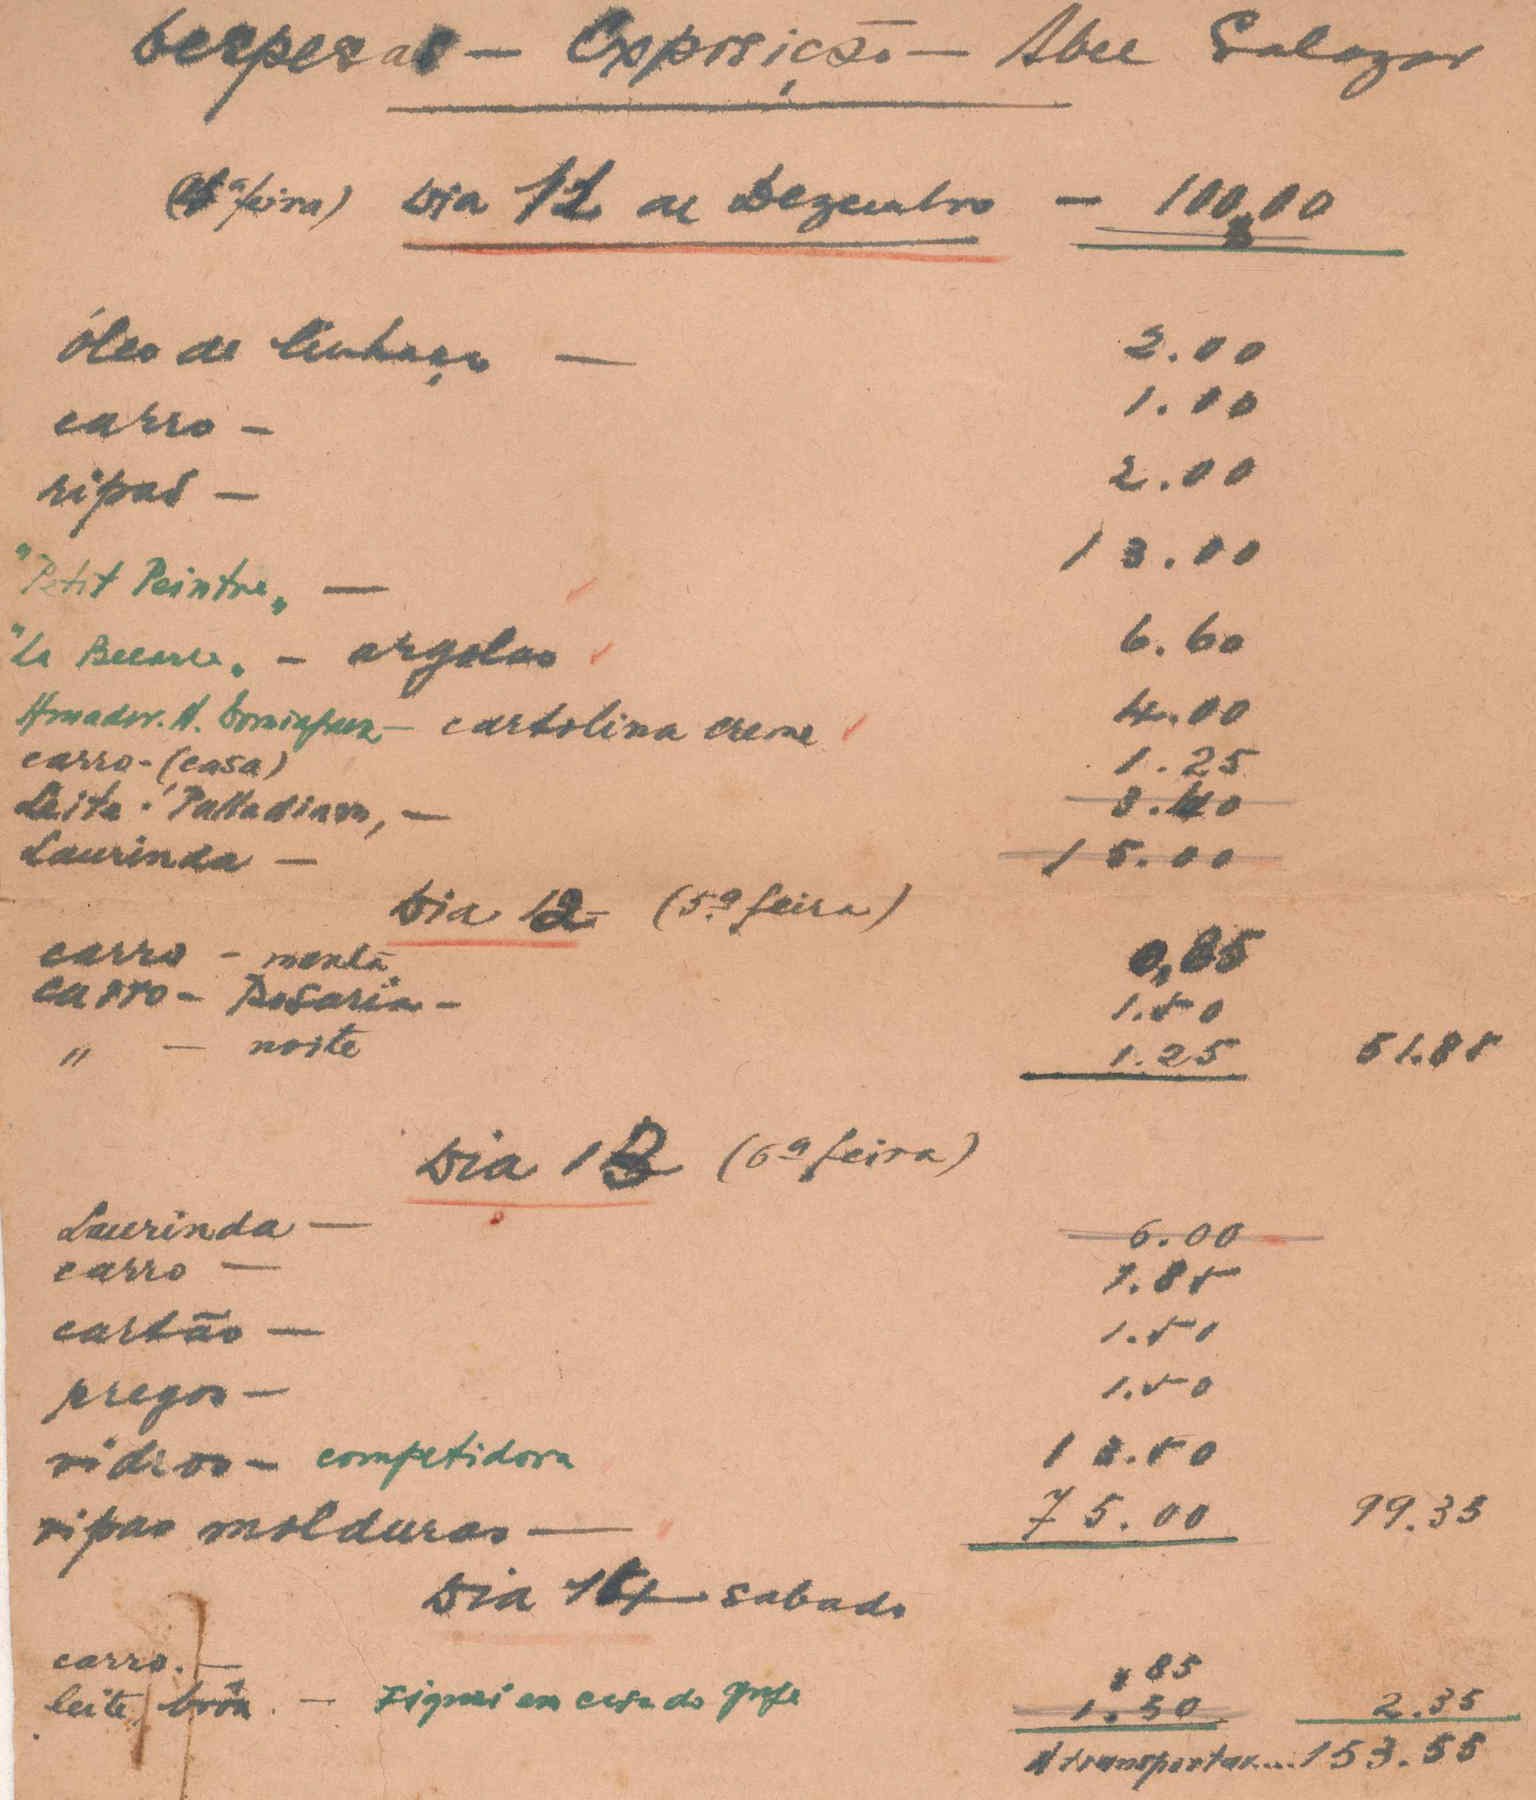 Despesas — Exposição — Abel Salazar
(4ª feira) Dia 11 de Dezembro — 100,00
Óleo de linhaça — 2.00
carro — 1.00
ripas — 2.00
"Petit Peintre" — 13.00
"La Bécarre" — argolas 6.60
Amador. N. Dominguez — cartolina creme 4.00
carro - (casa) 1.25
Leite - "Palladium" — 3.40
Laurinda — 15.00
Dia 12 (5ª feira)
carro - manhã 0,85
carro - Rosaria - 1.50
" — noite 1.25 51.85
Dia 13 (6ª feira)
Laurinda — 6.00
carro — 1.85
cartão — 1.50
pregos — 1.50
vidros — competidora 13.50
ripas molduras — 75.00 99.35
Dia 14 — sabado
carro. — .85
leite, brôa. — Fiquei em casa do 1.50 2.35
A transportar....153.55